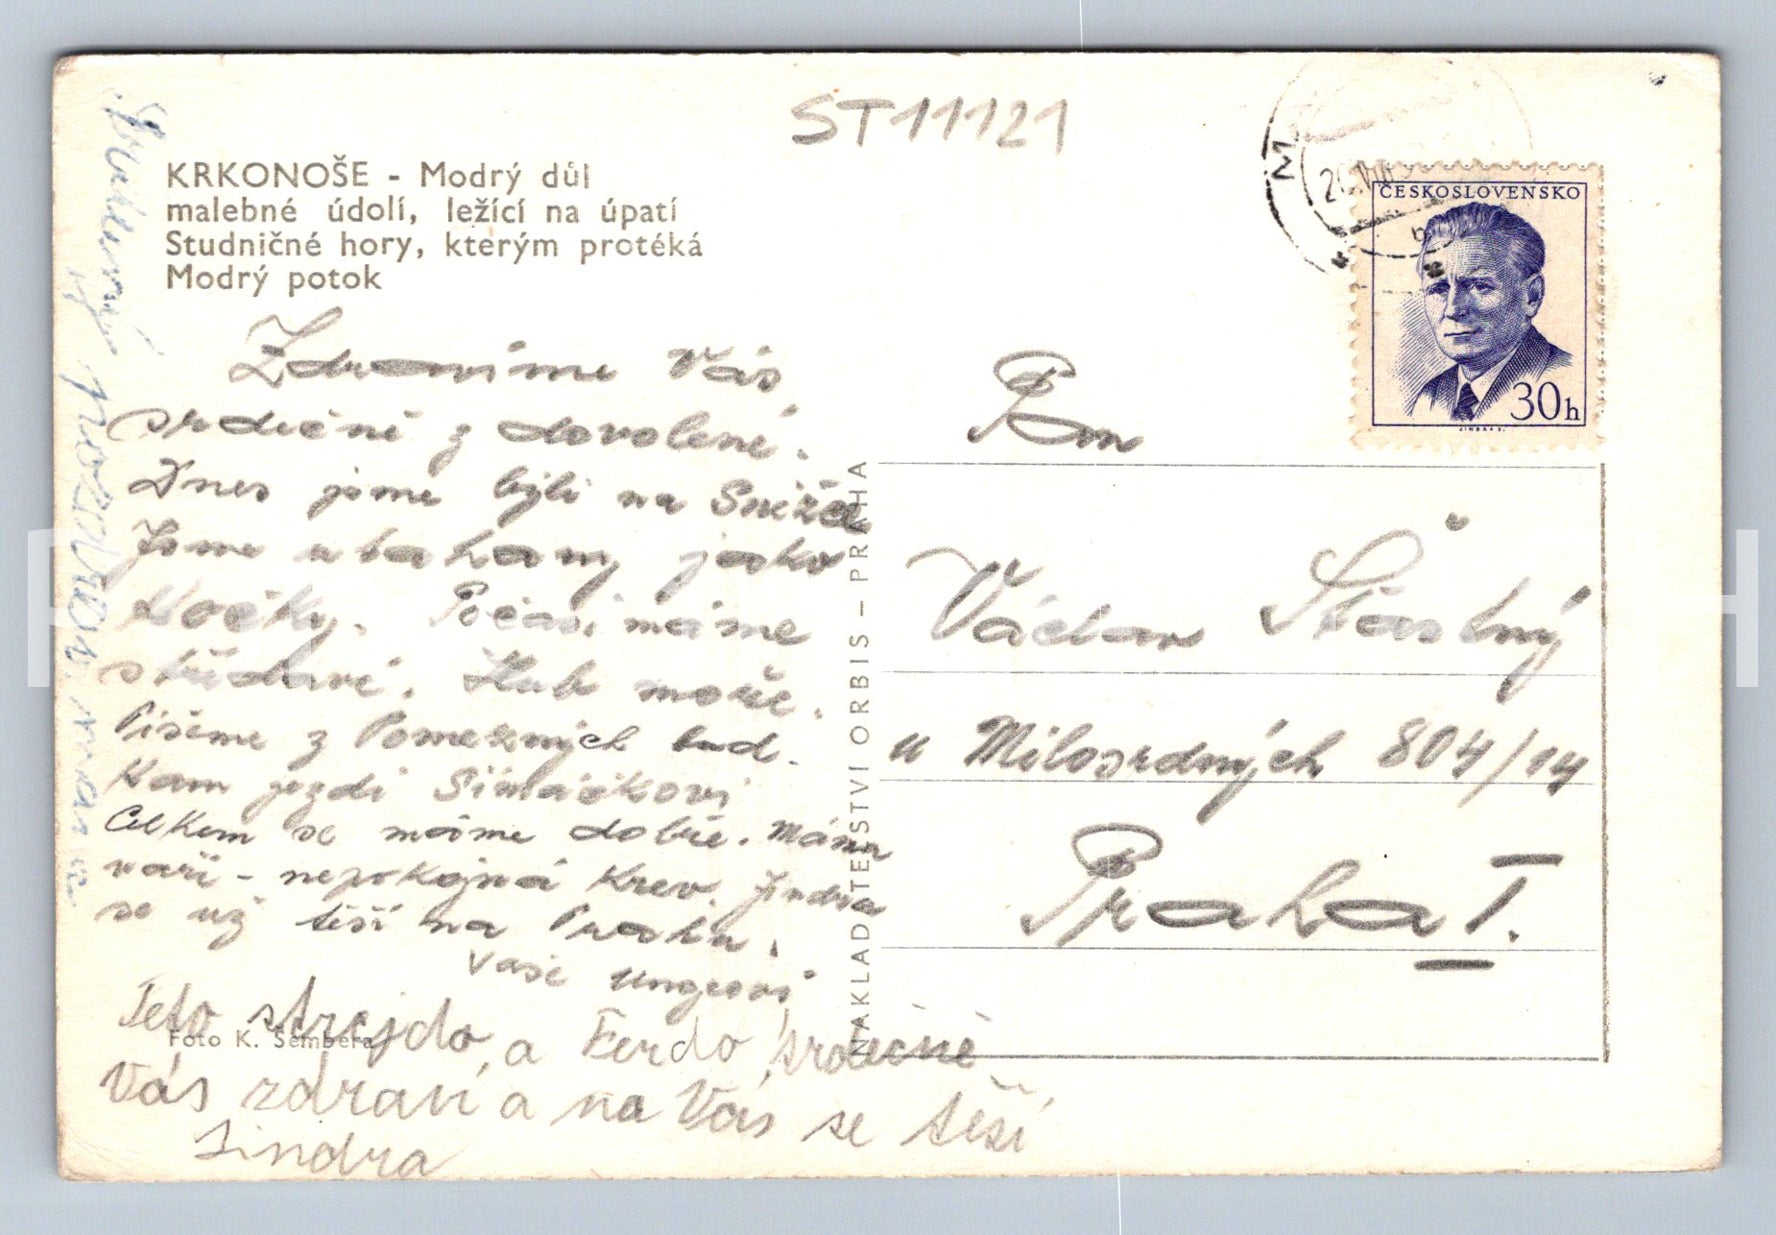 ST11121
KRKONOŠE - Modrý důl
malebné údolí, ležící na úpatí
Studničné hory, kterým protéká
Modrý potok
Zdravíme Vás
srdečně z dovolené.
Dnes jsme byli na Sněžce
Jsme utahaný jako
kočky. Počasí máme
střídavé. Hub moře.
Píšeme z Pomezných bud.
Kam jezdí Šimáčkovi
Celkem se máme dobře. Máma
vaří - nepokojná krev. Jindra
se už těší na Prahu.
Vaši Ungrovi
Teto strejdo a Ferdo srdečně
Vás zdraví a na Vás se těší
Jindra
Foto K. Šembera
NAKLADATELSTVÍ ORBIS – PRAHA
ČESKOSLOVENSKO
30h
Pan
Václav Šťastný
u Milosrdných 804/14
Praha I.